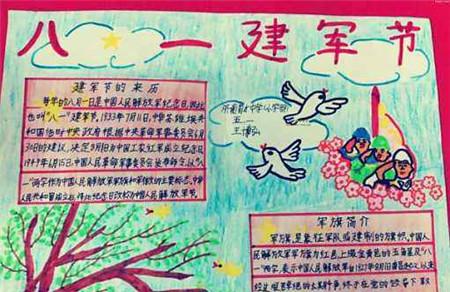 八一建军节
建军节的来历
每年的八月一日是中国人民解放军纪念日,因此
也叫"八一"建军节。1933年7月11日,中华苏维埃共
和国临时中央政府根据中央革命军事委员会6月
30日的建议,决定8月1日为中国工农红军成立纪念日。
1949年6月15日,中国人民革命军事委员会发布命令,以"八
一"两字作为中国人民解放军军旗和军徽的主要标志。中华
人民共和国成立后,将此纪念日改称为中国人民解放军建军节。
五二
王博弘
军旗简介
军旗,是象征军队或建制的旗帜,中国人
民解放军军旗为红色,上缀金黄色的五角星及"八一"
两字,表示中国人民解放军自1927年8月1日南昌起义以来